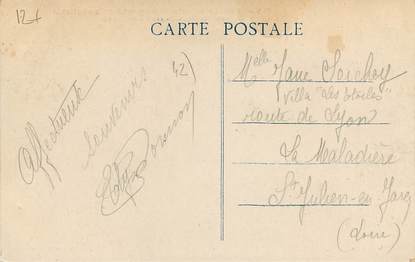 12+
CARTE POSTALE
42)
Affectueux
Souvenirs
Melle Jane
Villa "Les Etoiles"
route de Lyon
La Maladière
St Julien-en-Jarez
(Loire)